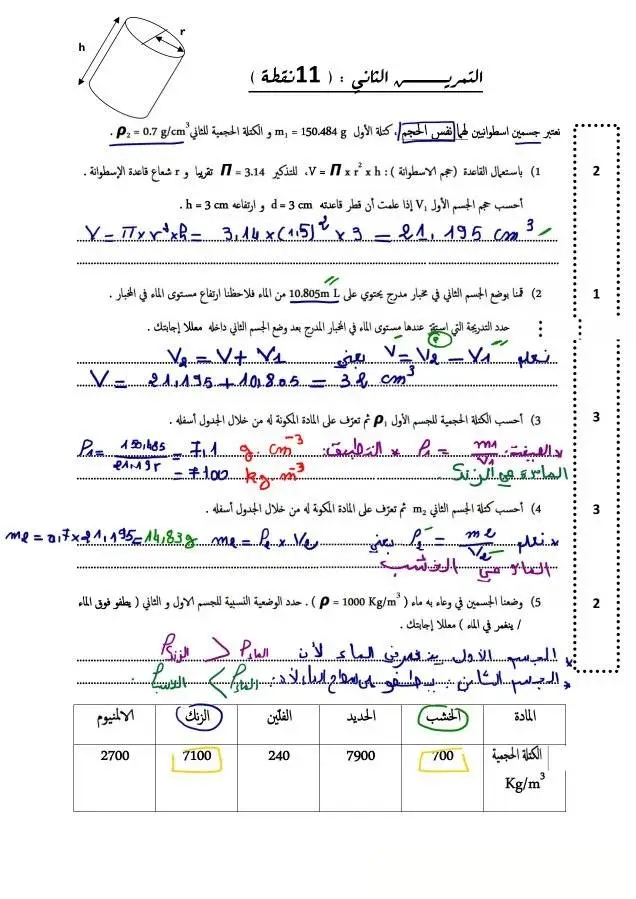 h
r
التمريـــــن الثاني : ( 11نقطة )
نعتبر جسمين اسطوانيين لهما نفس الحجم ، كتلة الأول m₁ = 150.484 g و الكتلة الحجمية للثاني ρ₂ = 0.7 g/cm³ .
2
1) باستعمال القاعدة (حجم الاسطوانة ) : V = Π x r² x h، للتذكير Π = 3.14 تقريبا و r شعاع قاعدة الإسطوانة .
أحسب حجم الجسم الأول V₁ إذا علمت أن قطر قاعدته d = 3 cm و ارتفاعه h = 3 cm .
V = π x r² x h = 3,14 x (1,5)² x 3 = 21,195 cm³
1
2) قمنا بوضع الجسم الثاني في مخبار مدرج يحتوي على 10.805m L من الماء فلاحظنا ارتفاع مستوى الماء في المخبار .
حدد التدريجة التي استقر عندها مستوى الماء في المخبار المدرج بعد وضع الجسم الثاني داخله معللا إجابتك .
نعلم V = V₂ - V₁ يعني V₂ = V + V₁
V = 21,195 + 10,805 = 32 cm³
3
3) أحسب الكتلة الحجمية للجسم الأول ρ₁ ثم تعرّف على المادة المكونة له من خلال الجدول أسفله .
* الصيغة: ρ₁ = m₁/V₁ * التطبيق: ρ₁ = 150,485/21,195 = 7,1 g.cm⁻³
= 7100 kg.m⁻³
المادة هي الزنك
3
4) أحسب كتلة الجسم الثاني m₂ ثم تعرّف على المادة المكونة له من خلال الجدول أسفله .
* نعلم ρ₂ = m₂/V₂ يعني m₂ = ρ₂ x V₂ m₂ = 0,7 x 21,195 = 14,83 g
المادة هي الخشب
2
5) وضعنا الجسمين في وعاء به ماء ( ρ = 1000 Kg/m³ ) . حدد الوضعية النسبية للجسم الاول و الثاني ( يطفو فوق الماء
/ ينغمر في الماء ) معللا إجابتك .
* الجسم الأول ينغمر في الماء لأن ρالماء < ρالزنك
* الجسم الثاني يطفو على سطح الماء لأن ρالماء > ρالخشب
المادة الخشب الحديد الفلّين الزنك الالمنيوم
الكتلة الحجمية Kg/m³ 700 7900 240 7100 2700